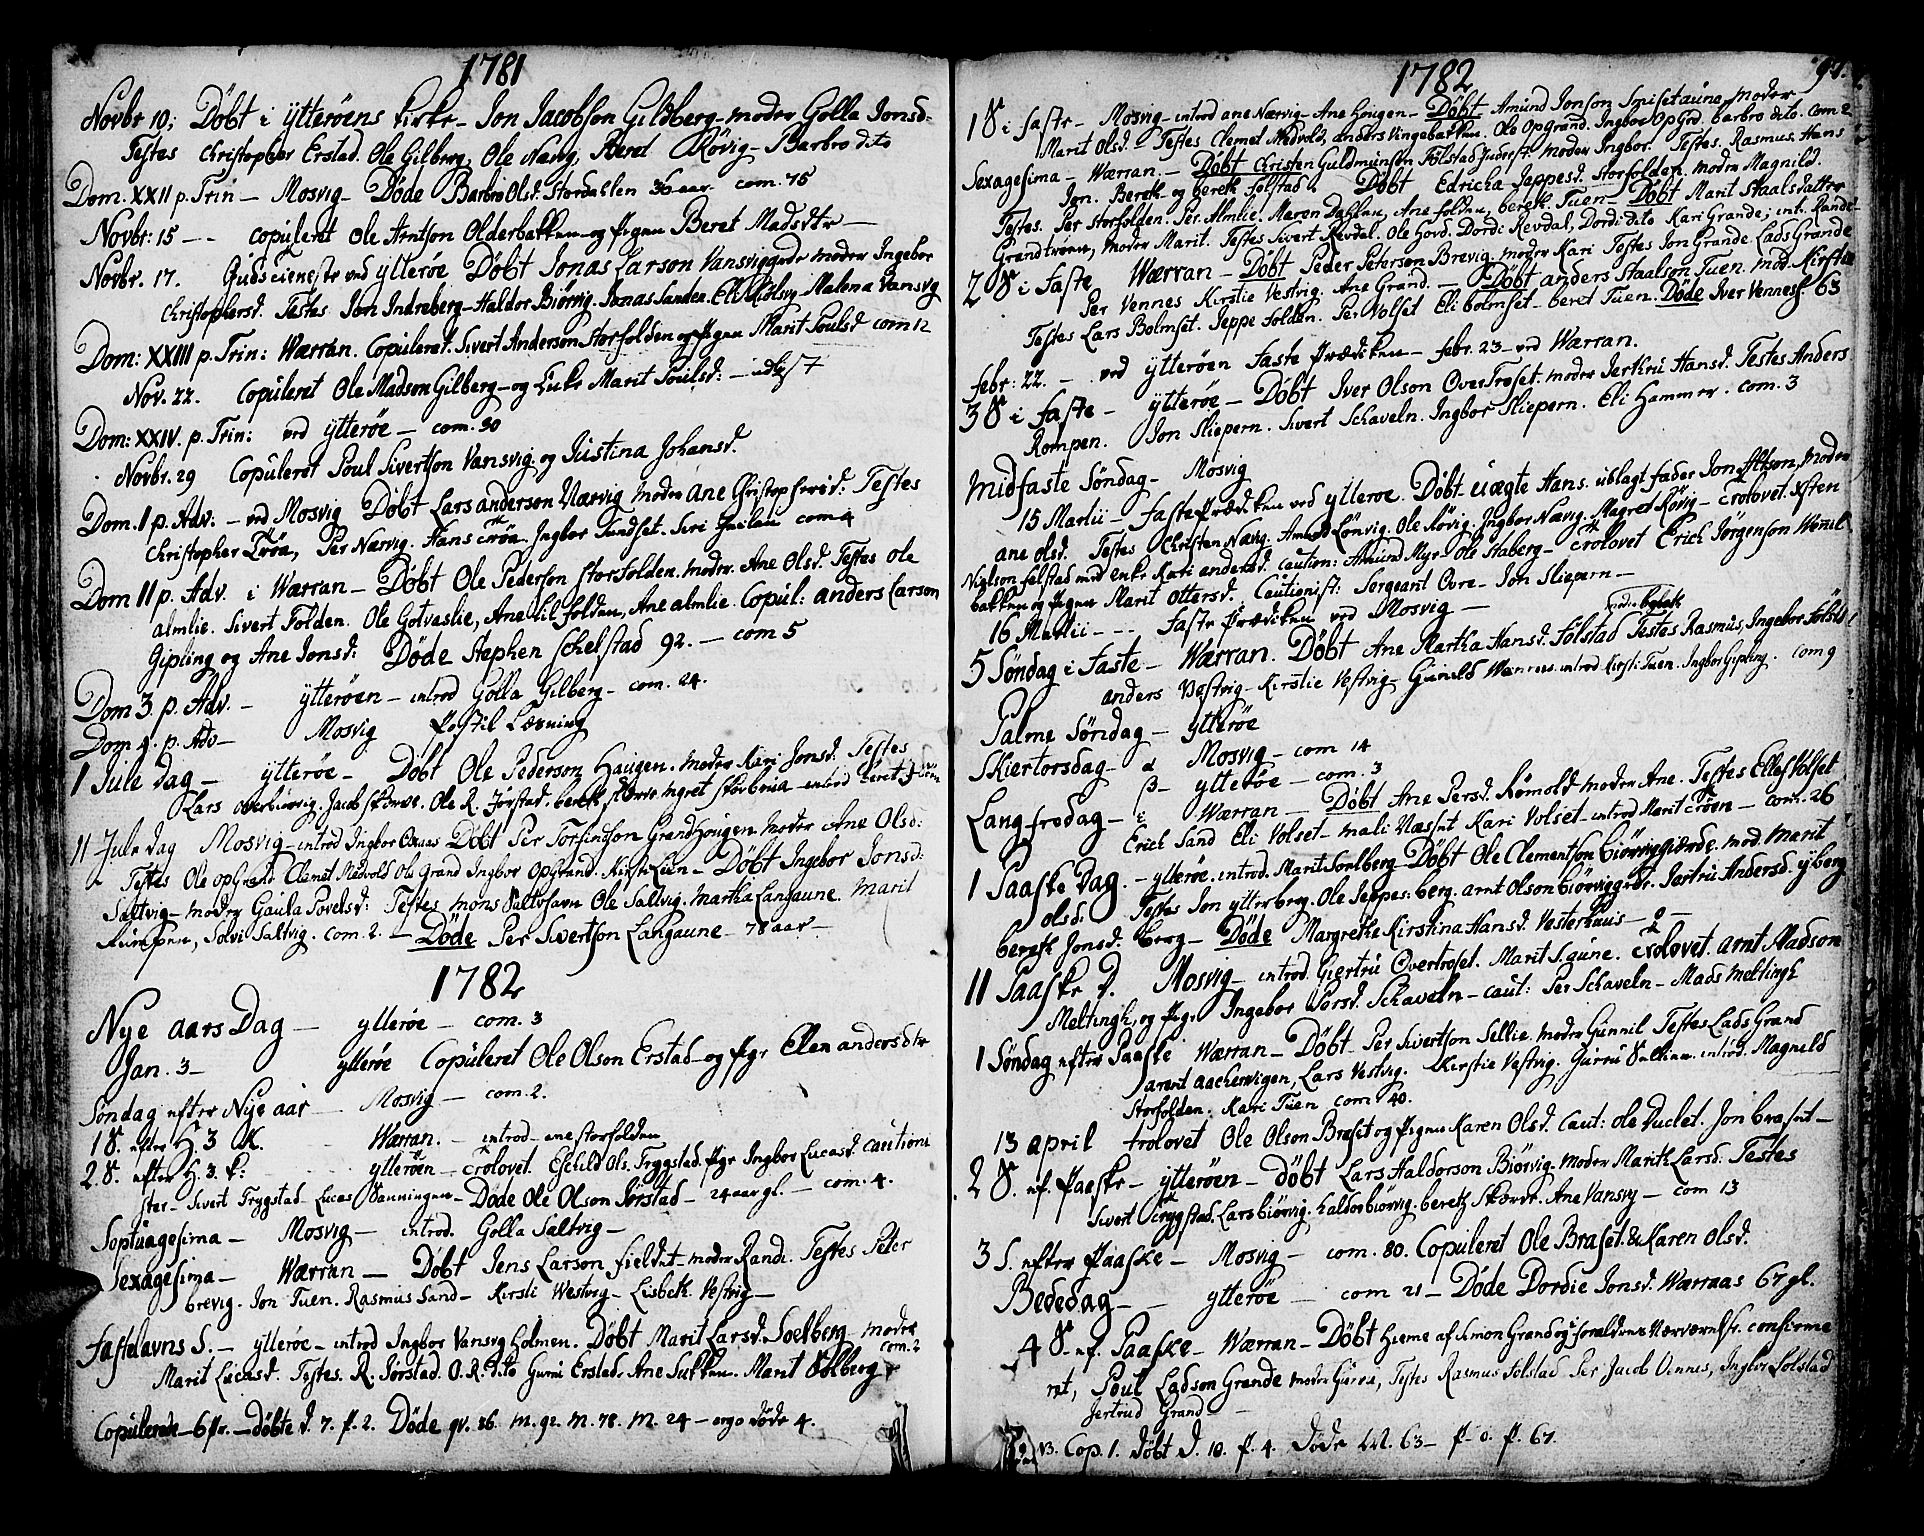 1781
Novbr 10; Döbt i ytteröens kirke - Jon Jacobson Gildberg - moder Golla Jonsd-
Testes Christopher Erstad. Ole Gilberg, Ole Nang, Beret Rövig - Barbro dito
Dom. XXII p. Trin - Mosvig - Döde Barbro Olsd. Stordahlen 36 aar. com. 75
Novbr: 15 - - copuleret Ole Arntson Olderbakken og Pigen Beret Madsdtr -
Novbr. 17. Gudstieneste ved ytteröe Döbt Jonas Larson Vansviggrdr moder Ingebor
Christophersd. Testes Jon Indreberg - Haldor Biörvig. Jonas Sanden. Eli Malena Vansvg
Dom: XXIII p. Trin: Wærran. Copuleret. Sivert Anderson Storfolden og Pigen Marit Poulsd com 12
Nov. 22. Copuleret Ole Madson Gilberg - og Enke Marit Poulsd: -
Dom: XXIV. p. Trin: ved ytteröe - com. 30
Novbr. 29 Copuleret Poul Sivertson Vansvig. og Justina Johansd.
Dom. 1 p. Adv. - ved Mosvig Döbt Lars anderson Nærvig moder Ane Christophersd: Testes
Christopher Tröa, Per Nærvig. Hans Tröa. Ingbor Sundset. Siri com 4
Dom 11 p. Adv i Wærran - Döbt Ole Pederson Storfolden. moder. Ane Olsd. Testes Ole
almlie. Sivert Folden. Ole Gotvaslie, Ane lil folden, Ane almlie. Copul: anders Larson
Gipling og Ane Jonsd: Döde Stephen Schelstad 92. - com 5
Dom 3. p. Adv. - ytteröen - introd Golla Gilberg - com. 24.
Dom 4. p. Adv - Mosvig Postil Læsning
1 Jule dag - ytteröe - Döbt Ole Pederson Haugen. moder Kari Jonsd. Testes
Lars overbiörvig. Jacob Skierve. Ole R. Jörstad. bereth skierve - introd
11 Jule dag Mosvig - introd Ingbor Döbt Per Torfindson Grandhougen moder Ane Olsd:
Testes Ole opGrand Clemet Medvold Ole Grand Ingbor OpGrand. Kirsti Lien - Döbt Ingebor Jonsd:
Saltvig - moder Gaula Povelsd: Testes mons Saltvhavn Ole Saltvig. martha Langaune. Marit
Rumpen, Solvi Saltvig. com. 2. - Döde Per Sivertson Langaune - 78 aar -
1782
Nye aars Dag - ytteröe - com. 3
Jan. 3 - ytteröe Copuleret Ole Olson Erstad - og Pige Elen andersdtr
Söndag efter Nye aar - Mosvig - com. 2.
1 S. efter H. 3 K. Wærran. - introd - ane storfolden
2 S. efter H. 3. K: ytteröen - Trolovet. Eschild Ols. Tryggstad. Pige Ingbor Lucasd. cautioni
ster - Sivert Trygstad. Lucas Banningen - Döde Ole Olson Jörstad - 24 aar gl. - com. 4.
Septuagesima - Mosvig - introd. Golla Saltvig -
Sexagesima - Wærran - Döbt Jens Larson fieldet - moder Rande. Testes Peter
brevig. Jon Tuen. Rasmus Sand - Kirsti Westvig - Lisbeth Vestvig -
Fastelavns S. - ytteröe - introd Ingbor Vansvg Holmen. Döbt Marit Larsd. Soelberg moder
Marit Lucasd. Testes. R. Jörstad. O. R. dito Guru Erstad. Ane Sukken. Marit Solberg com. 2
Copulerede - 6 pr. - döbte d. 7. P. 2. Döde qv. 36. M. 92. M. 78. M. 24 - ergo döde 4.
1782
1 S i faste - Mosvig - introd ane Nærvig - Ane Hougen - Döbt Amund Jonson Smisetaune, moder
Marit Olsd. Testes Clemet Medvold, anders Vingebakken. Ole OpGrand. Ingbor OpGrd. barbro dito. com 2
Sexagesima - Wærran. - Döbt Christen Guldmunson Folstad moder Ingbor. Testes. Rasmus, Hans
Jon. Bereth og bereth folstad. Döbt Edricka Jeppesd. Storfolden. moder Magnild.
Testes. Per Storfolden. Per Almlie. Maren Dahlen, Ane folden, bereth Tuen - Döbt Marit Staalsdatter
Grandtröen, moder Marit. Testes Sivert Revdal. Ole hovd. Dordi Revdal, Dordi dito Kari Grande; int. Rande
2 S i Faste Wærran - Döbt Peder Peterson Brevig. moder Kari Testes Jon Grande. Lads Grande
Per Vennes Kirstie Vestvig. Ane Grand. - Döbt anders Staalson Tuen. mod. Kirstie
Testes Lars Bolmset. Jeppe folden. Per Volset Eli bolmset - beret Tuen. Döde Iver Vennes 63
febr: 22. - ved ytteröen Faste Prædiken - febr. 23 - ved Wærran.
3 S i faste - ytteröe - Döbt Iver Olson OverTroset. moder Jertru Hansd. Testes Anders
Rompen. Jon Sliepern. Sivert Schaveln. Ingbor Sliepern. Eli Hammer. com. 3
Midfaste Söndag - Mosvig
15 Martii - FastePrædiken ved ytteröe. Döbt uægte Hans. udlagt fader Jon moder
ane olsd. Testes Christen Nævg. Amund Lönvig. Ole Rövig. Ingbor Nævg. Magret Rövig - Trolovet.
Nielson folstad med enke Kari andersd. caution: Amund Myr - Ole Staberg - Trolovet Erich Jörgenson
bakken og Pigen Marit Ottersd. Cautionist: Sergeant Ovre - Jon Sliepern -
16 Martii - - - Faste Prædiken ved Mosvig -
5 Söndag i Faste - Wærran. Döbt Ane Martha Hansd. Folstad Testes Rasmus, Ingebor
anders Vestvig - Kirstie Vestvig - Gunild introd Kirsti Tuen. Ingbor Gipling. com 9
Palme Söndag - ytteröe
Skiertorsdag - α Mosvig - com 14
β - ytteröe - com. 3
Langfredag - i Wærran - Döbt Ane Persd. Römold moder Ane. Testes Ellef Volset
Erich Sand Eli Volset - mali Næsset Kari Volset - introd Marit Tröen - com. 26
1 Paaske Dag. - ytteröe. introd. Marit Sorlberg - Döbt Ole Clementson biörviggierde. mod. Marit
olsd. Testes Jon ytterberg. Ole Jeppes: berg. arnt Olson biörviggrdr. Jertru Andersd. yberg
bereth Jonsd. berg - Döde Margrethe Kirstina Hansd. Vesterhuus - 0 -
11 Paaske D. Mosvig - introd. Giertru Overtroset. Marit S. aune. Trolovet. arnt Madson
Meltingh, og Pige Ingebor Persd. Schaveln - caut: Per Schaveln - Mads Meltingh
1 Söndag efter Paaske Wærran - Döbt Per Sivertson Sellie. moder Gunnil Testes Lads Grand
arent aachervigen, Lars Vestvig. Kirstie Vestvig. Gurru introd. Magnild
Storfolden. Kari Tuen com 40.
13 april trolovet Ole Olson Braset og Pigen Karen Olsd. Caut: ole Duclet. Jon braset -
2 S. ef. Paaske - ytteröen - döbt Lars Haldorson Biörvig. moder Marith Larsd. Testes
Sivert Trygstad. Lars biörvig. haldor biörvig. bereth Skierve. Ane Vansvg - com 13
3 S. efter Paaske - Mosvig - com. 80. Copuleret Ole Braset. & Karen Olsd.
Bededag - - ytteröe - com 21 - Döde Dordie Jonsd. Wærraas 67 gl.
4 S. ef. Paaske - Wærran - Döbt hieme af Simon Grand confirme
ret, Poul Ladson Grande moder Gurru, Testes Rasmus folstad Per Jacob Vennes, Ingbor Folstad
Jertrud Grand -
13. Cop. 1. Döbt d. 10. P. 4. Döde M. 63 - P - 0. P. 67.